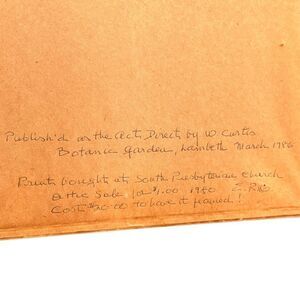 Publish'd as the Act Directs by W. Curtis
Botanic Garden, Lambeth March 1786
Prints bought at South Presbyterian Church
Attic Sale $1.00 1980
Cost $20.00 to have it framed!